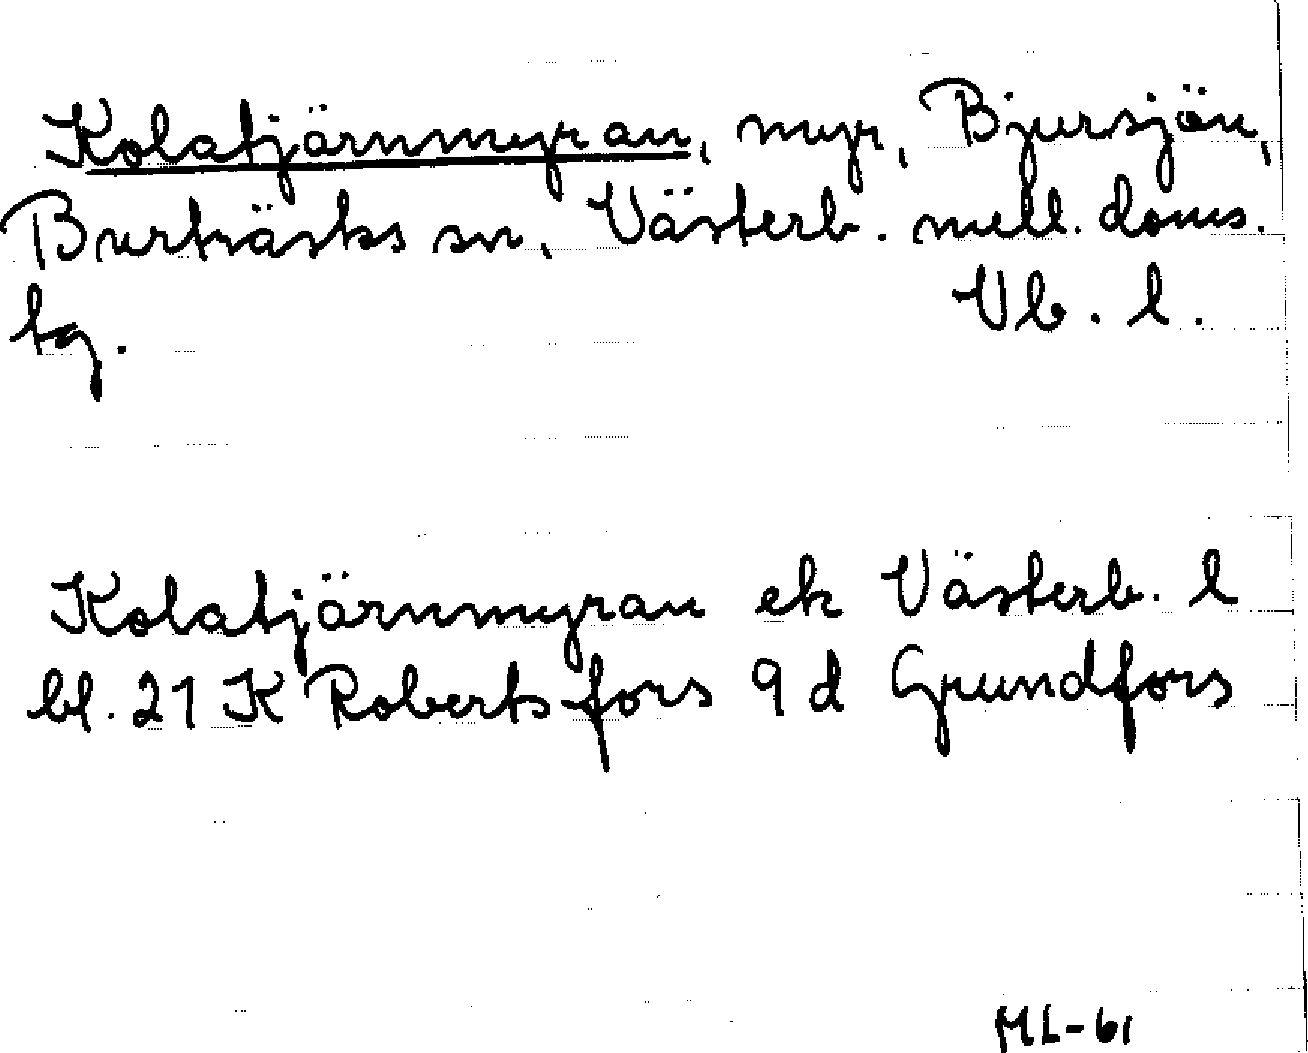 Kolatjärnmyran, myr, Bjursjön,
Burträsks sn, Västerb. mell. doms.
tg. Vb. l.
Kolatjärnmyran ek Västerb. l
bl. 21 K Robertsfors 9 d Grundfors
ML-61